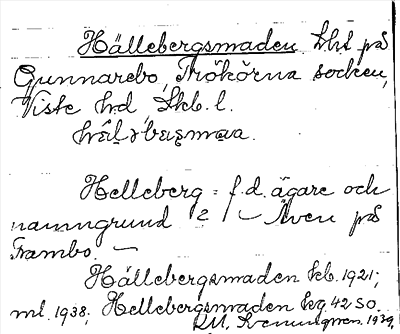 Hällebergsmaden, lht på
Gunnarebo, Trökörna socken,
Viste hrd Skb. l.
Helleberg = f.d. ägare och
namngrund ? / – Även på
Frambo. –
Hällebergsmaden hb. 1921;
ml. 1938; Hellebergsmaden 42 SO.
1939,